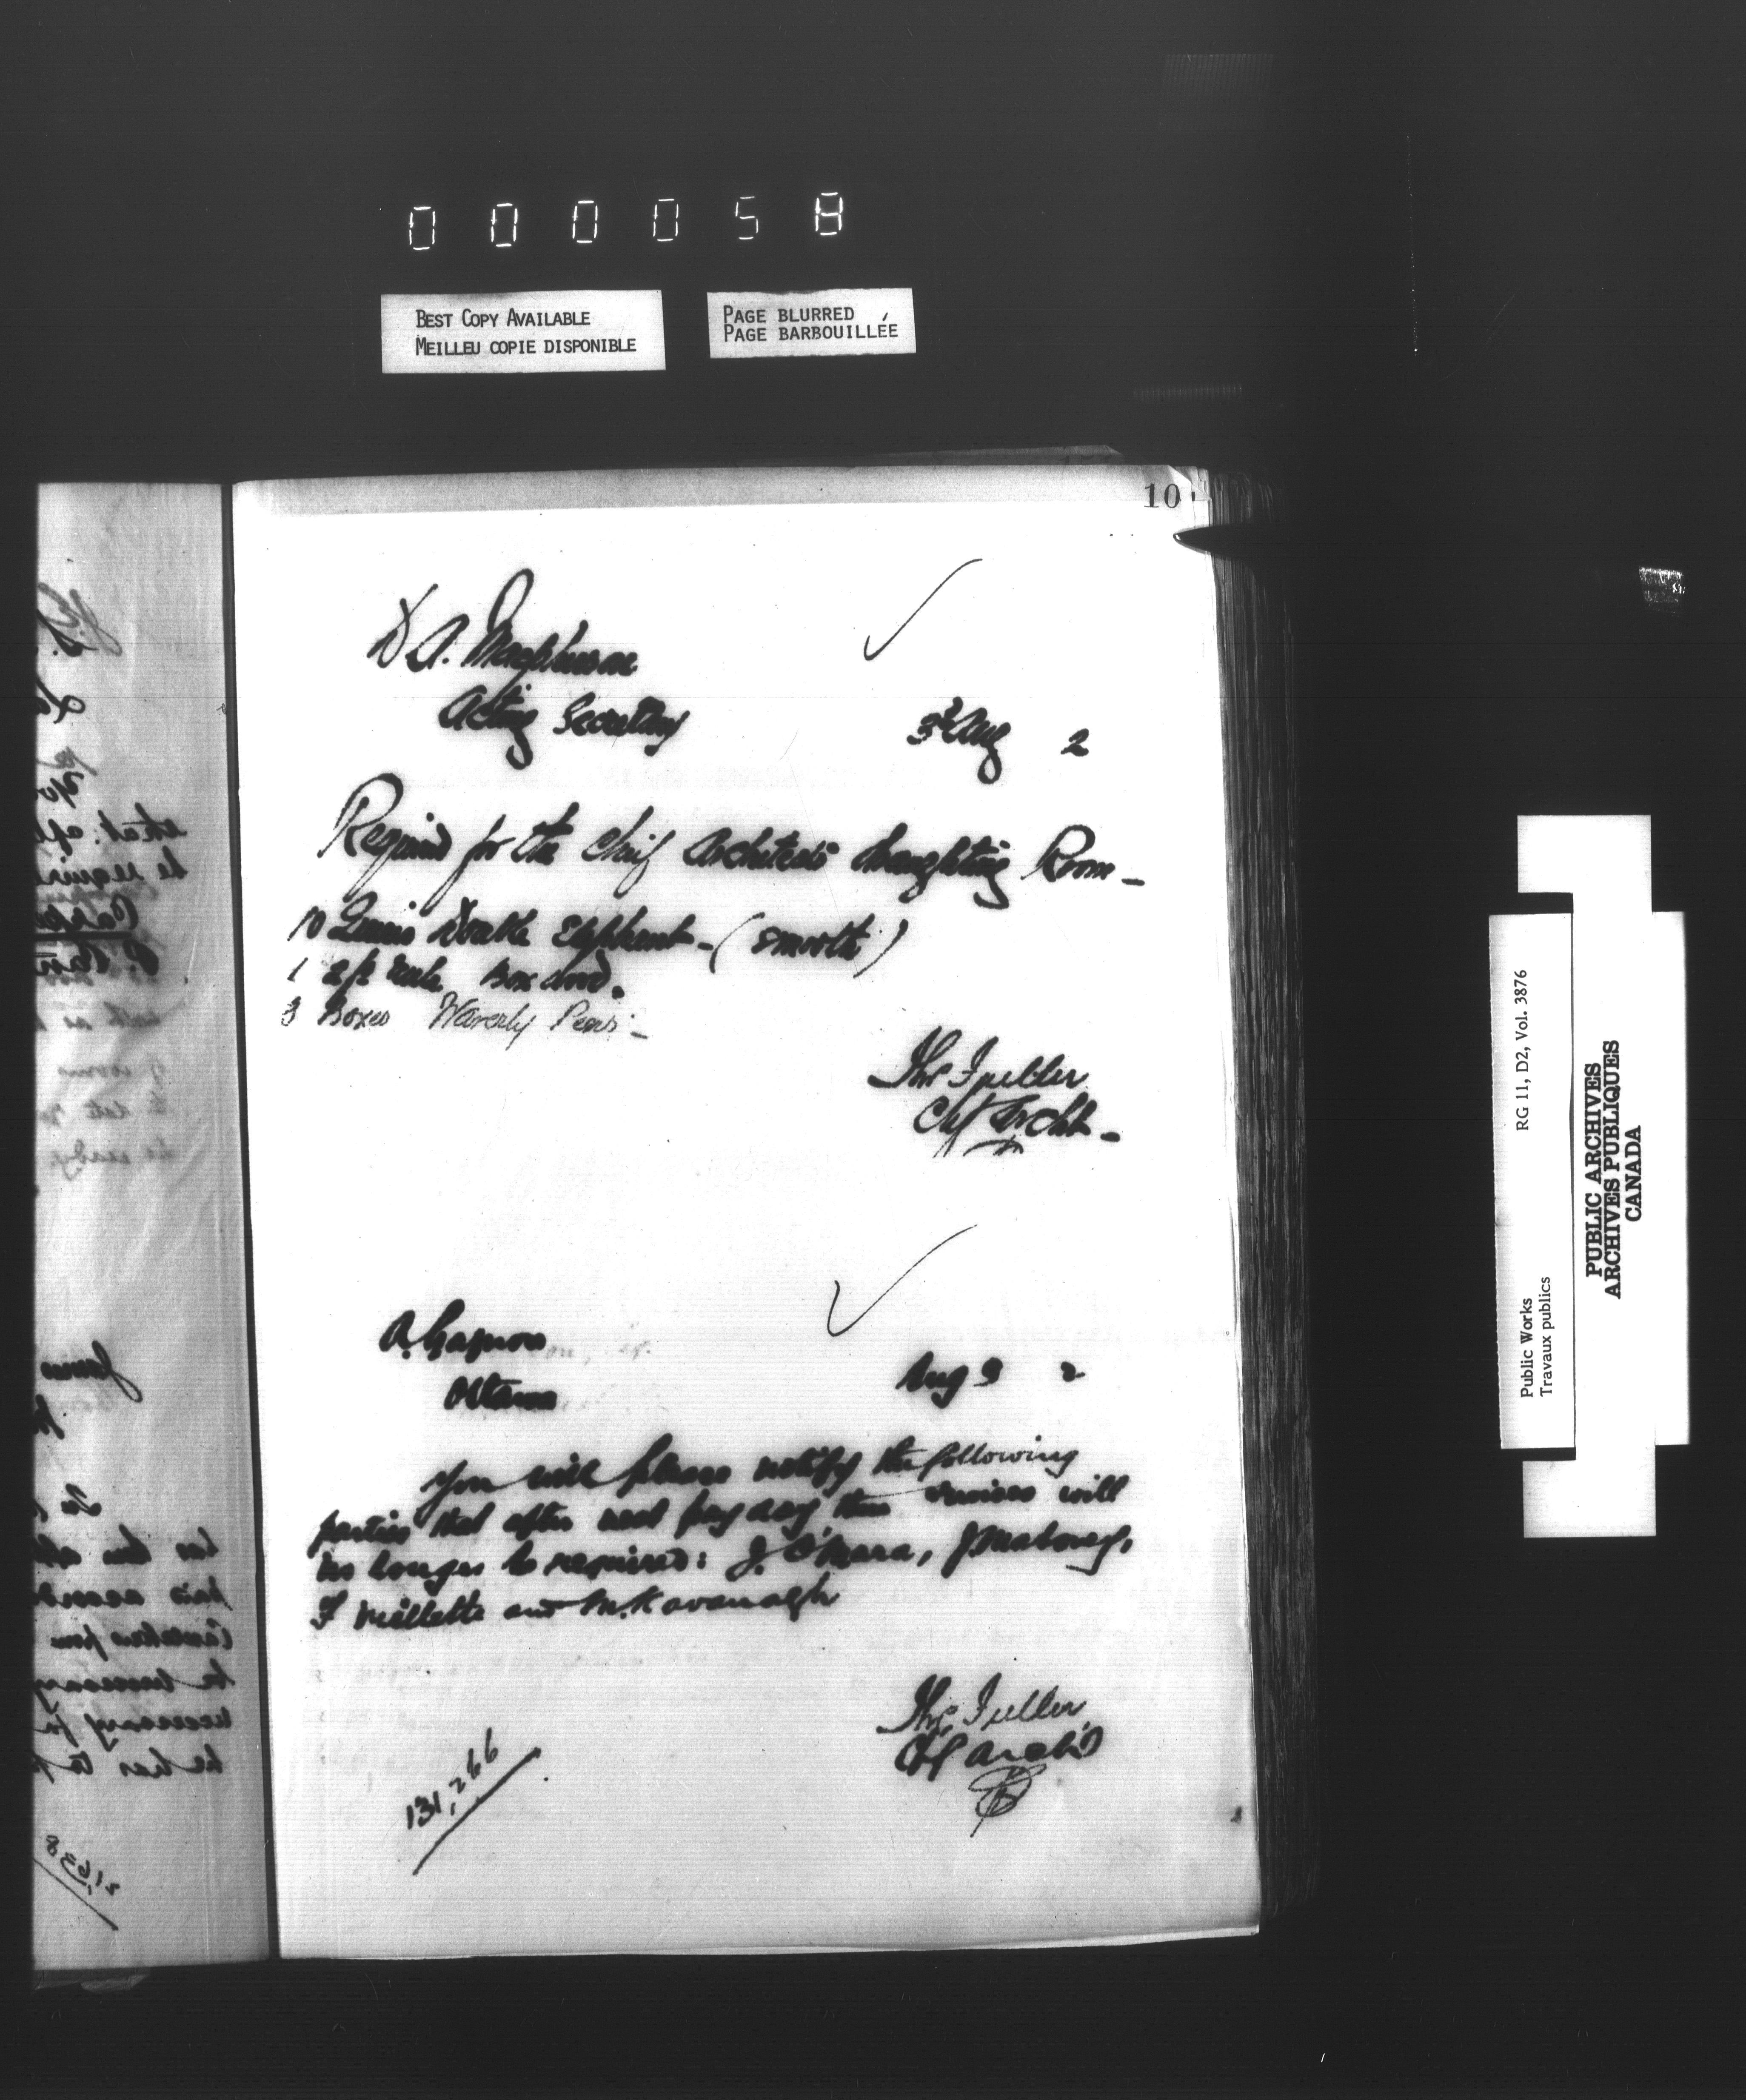 000058
BEST COPY AVAILABLE
MEILLEU COPIE DISPONIBLE
PAGE BLURRED
PAGE BARBOUILLÉE
10
A.
Acting Secretary
3d Aug 2
Required for the Chief Architect's draughting Room -
10 Quires Double Elephant - (smooth)
1 2 ft rule Box Wood.
3 Boxes Waverly Pens -
Thos Fuller
Chf Archt -
A. Gagnon
Ottawa
Aug 3 2
You will please notify the following
parties that after next pay day their services will
no longer be required: J. O'Mara, J Maloney,
F Millette and M. Kavanagh
Thos Fuller
Chf Archt
131,266
Public Works
Travaux publics
RG 11, D2, Vol. 3876
PUBLIC ARCHIVES
ARCHIVES PUBLIQUES
CANADA